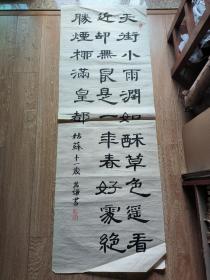 天街小雨潤如酥草色遥看
近却無最是一年春好處絶
勝煙柳滿皇都
姑蘇十一歲
書